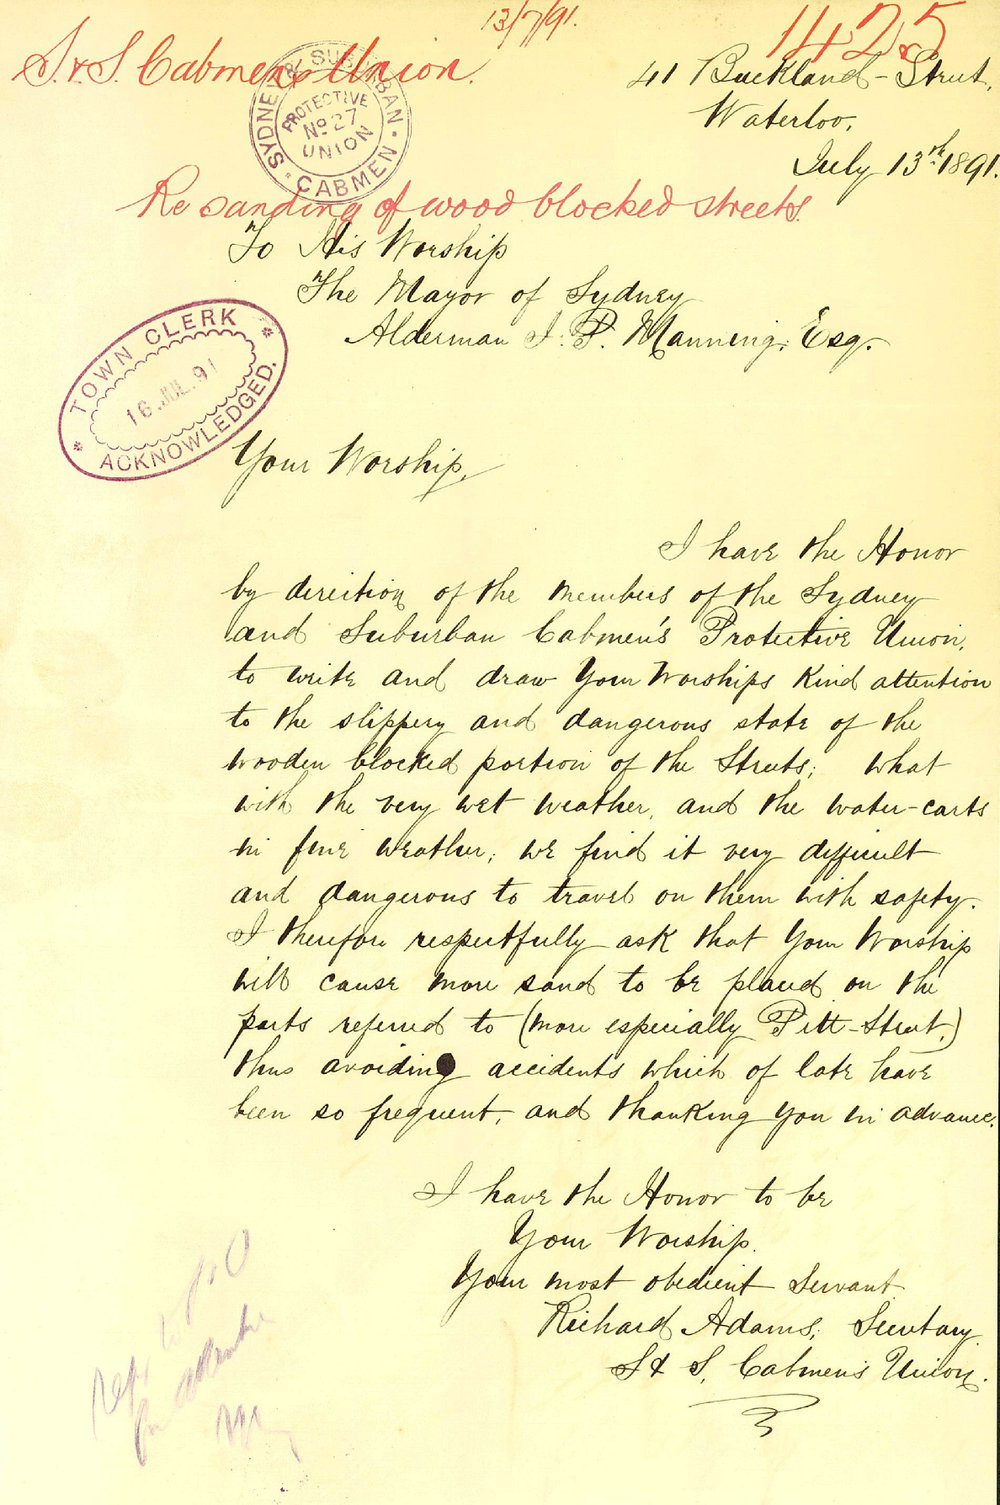 13/7/91.
1425
S & S. Cabmen's Union.
SYDNEY & SUBURBAN
PROTECTIVE
No 27
UNION
CABMEN
41 Buckland-Street,
Waterloo,
July 13th 1891.
Re sanding of wood blocked streets.
To His Worship
The Mayor of Sydney
Alderman P. Manning, Esq.
TOWN CLERK
16 JUL. 91
ACKNOWLEDGED.
Your Worship,
I have the Honor
by direction of the members of the Sydney
and Suburban Cabmen's Protective Union,
to write and draw Your Worships Kind attention
to the slippery and dangerous state of the
wooden blocked portion of the Streets; what
with the very wet weather, and the water-carts
in fine weather; we find it very difficult
and dangerous to travel on them with safety.
I therefore respectfully ask that Your Worship
will cause more sand to be placed on the
parts referred to (more especially Pitt-Street,)
thus avoiding accidents which of late have
been so frequent, and thanking you in advance.
I have the Honor to be
Your Worship.
Your most obedient Servant
Richard Adams, Secretary.
S & S. Cabmen's Union.